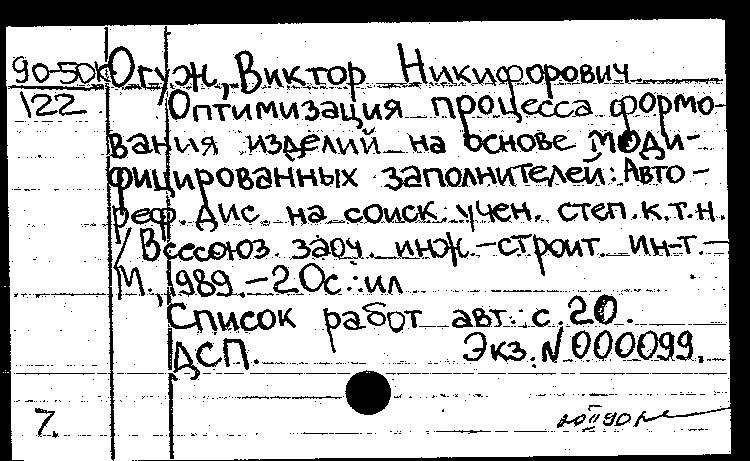 90-50К Огуж, Виктор Никифорович
122 Оптимизация процесса формо-
вания изделий на основе моди-
фицированных заполнителей: Авто-
реф. Дис. на соиск. учен. степ. к.т.н.
/ Всесоюз. заоч. инж.-строит. ин-т.-
М., 1989. - 20с.: ил
Список работ авт.: с.20.
ДСП. Экз. N 000099.
7.